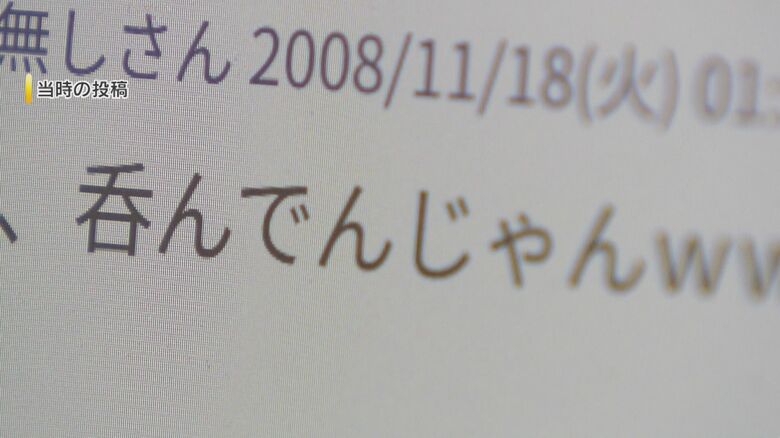 無しさん 2008/11/18(火) 01:
当時の投稿
、呑んでんじゃんww